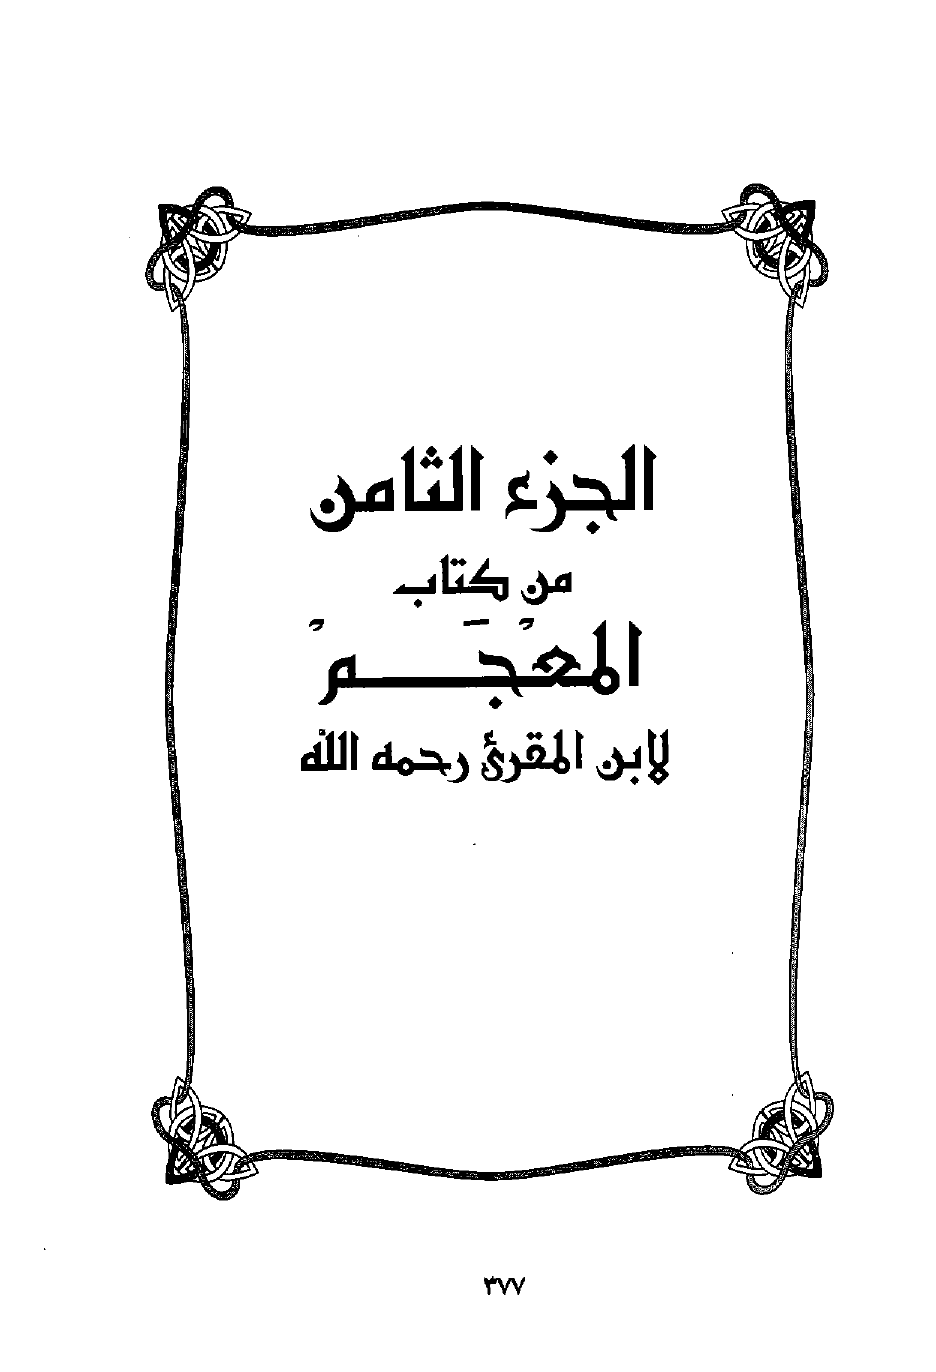 الجزء الثامن
من كتاب
المعْجَمْ
لابن المقرئ رحمه الله
٣٧٧